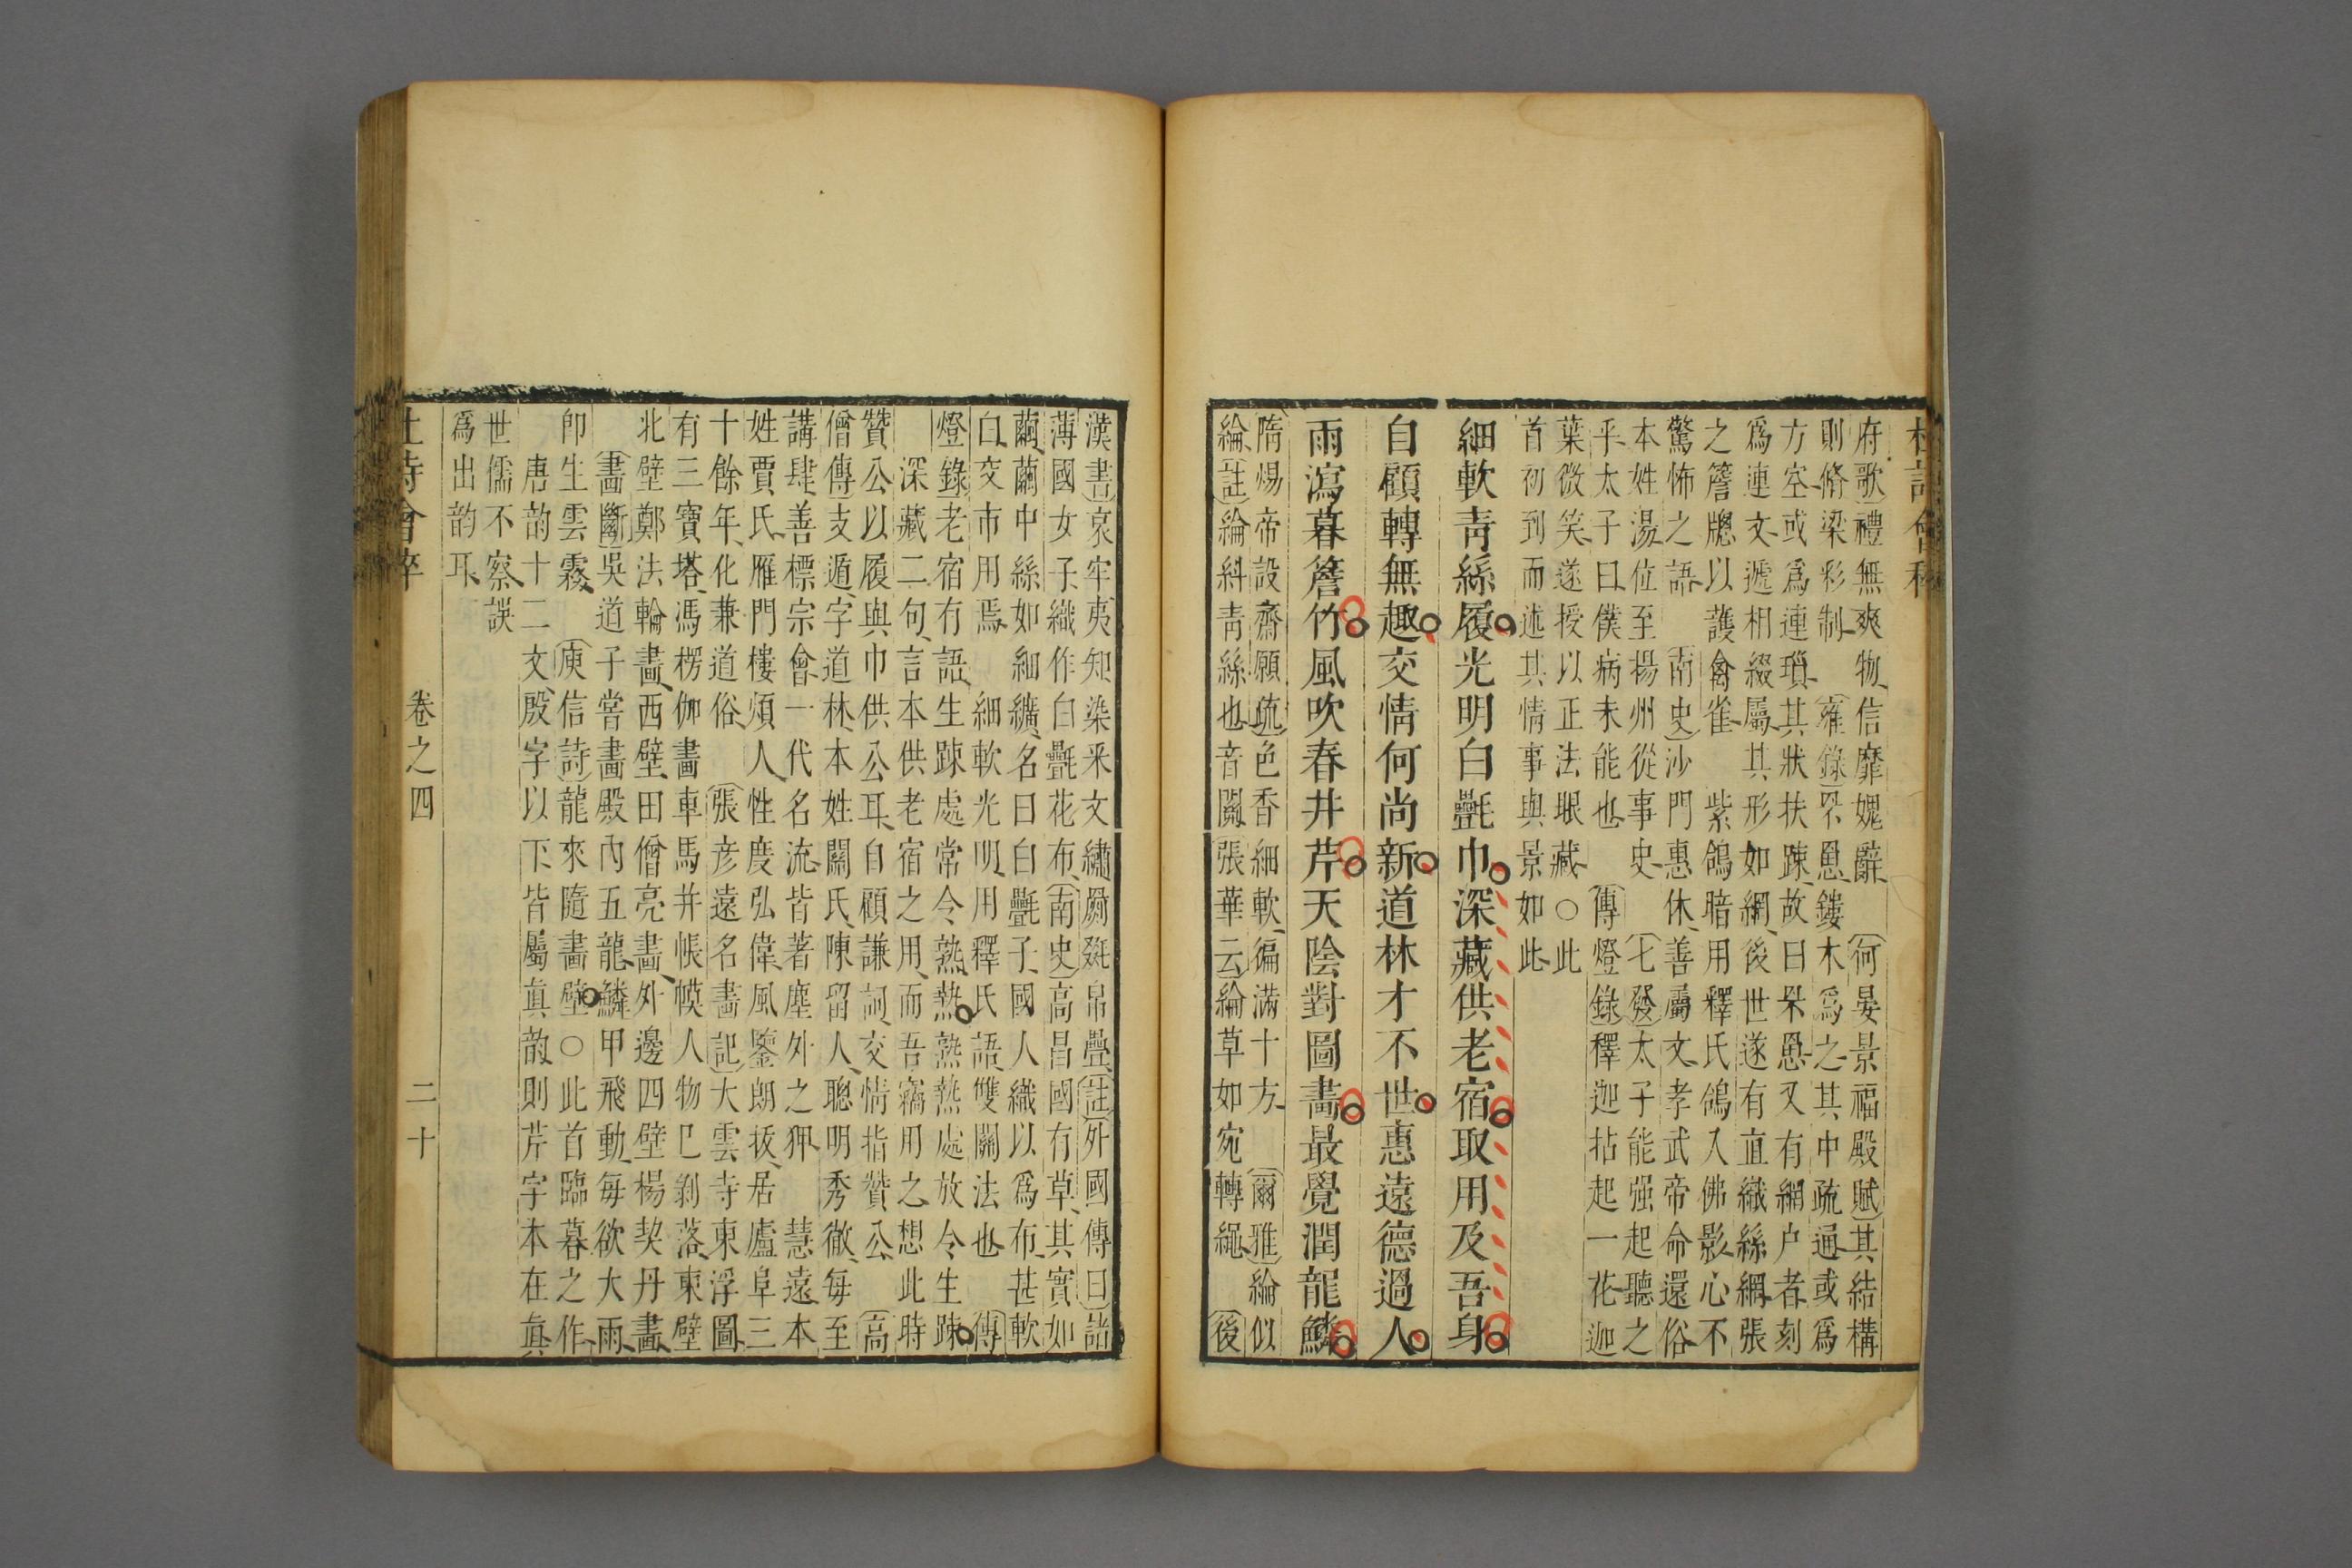 府歌禮無爽物信靡媿辭　何晏景福殿賦其結構
則脩梁彩制　雍錄罘罳鏤木爲之其中疏通或爲
方空或爲連瑣其狀扶踈故曰罘罳又有網户者刻
爲連文遞相綴屬其形如網後世遂有直織絲網張
之簷牕以護禽雀　紫鴿暗用釋氏鴿入佛影心不
驚怖之語　南史沙門惠休善屬文孝武帝命還俗
本姓湯位至揚州從事史　七發太子能强起聽之
乎太子曰僕病未能也　傳燈錄釋迦拈起一花迦
葉微笑遂授以正法眼藏○此
首初到而述其情事與景如此
細軟青絲履光明白氎巾深藏供老宿取用及吾身
自顧轉無趣交情何尚新道林才不世惠遠德過人
雨瀉暮簷竹風吹春井芹天陰對圖畫最覺潤龍鱗
隋煬帝設齋願疏色香細軟徧滿十方　爾雅綸似
綸註綸糾青絲也音關張華云綸草如宛轉繩　後
杜詩會稡
漢書哀牢夷知染采文繡罽㲲帛疊註外國傳曰諸
薄國女子織作白氎花布南史高昌國有草其實如
繭繭中絲如細纊名曰白氎子國人織以爲布甚軟
白交市用焉　細軟光明用釋氏語雙關法也　傳
燈錄老宿有語生踈處常令熟熟熟處放令生踈
深藏二句言本供老宿之用而吾竊用之想此時
贊公以履與巾供公耳自顧謙詞交情指贊公　高
僧傳支遁字道林本姓關氏陳留人聰明秀徹每至
講肆善標宗會一代名流皆著塵外之狎　慧遠本
姓賈氏雁門樓煩人性度弘偉風鑒朗拔居廬阜三
十餘年化兼道俗　張彦遠名畵記大雲寺東浮圖
有三寶塔馮楞伽畵車馬幷帳幙人物巳剥落東壁
北壁鄭法輪畵西壁田僧亮畵外邊四壁楊契丹畵
畵斷吳道子嘗畵殿內五龍鱗甲飛動每欲大雨
卽生雲霧　庾信詩龍來隨畵壁○此首臨暮之作
唐韵十二文殷字以下皆屬眞韵則芹字本在眞
世儒不察誤
爲出韵耳
杜詩會稡　卷之四　二十